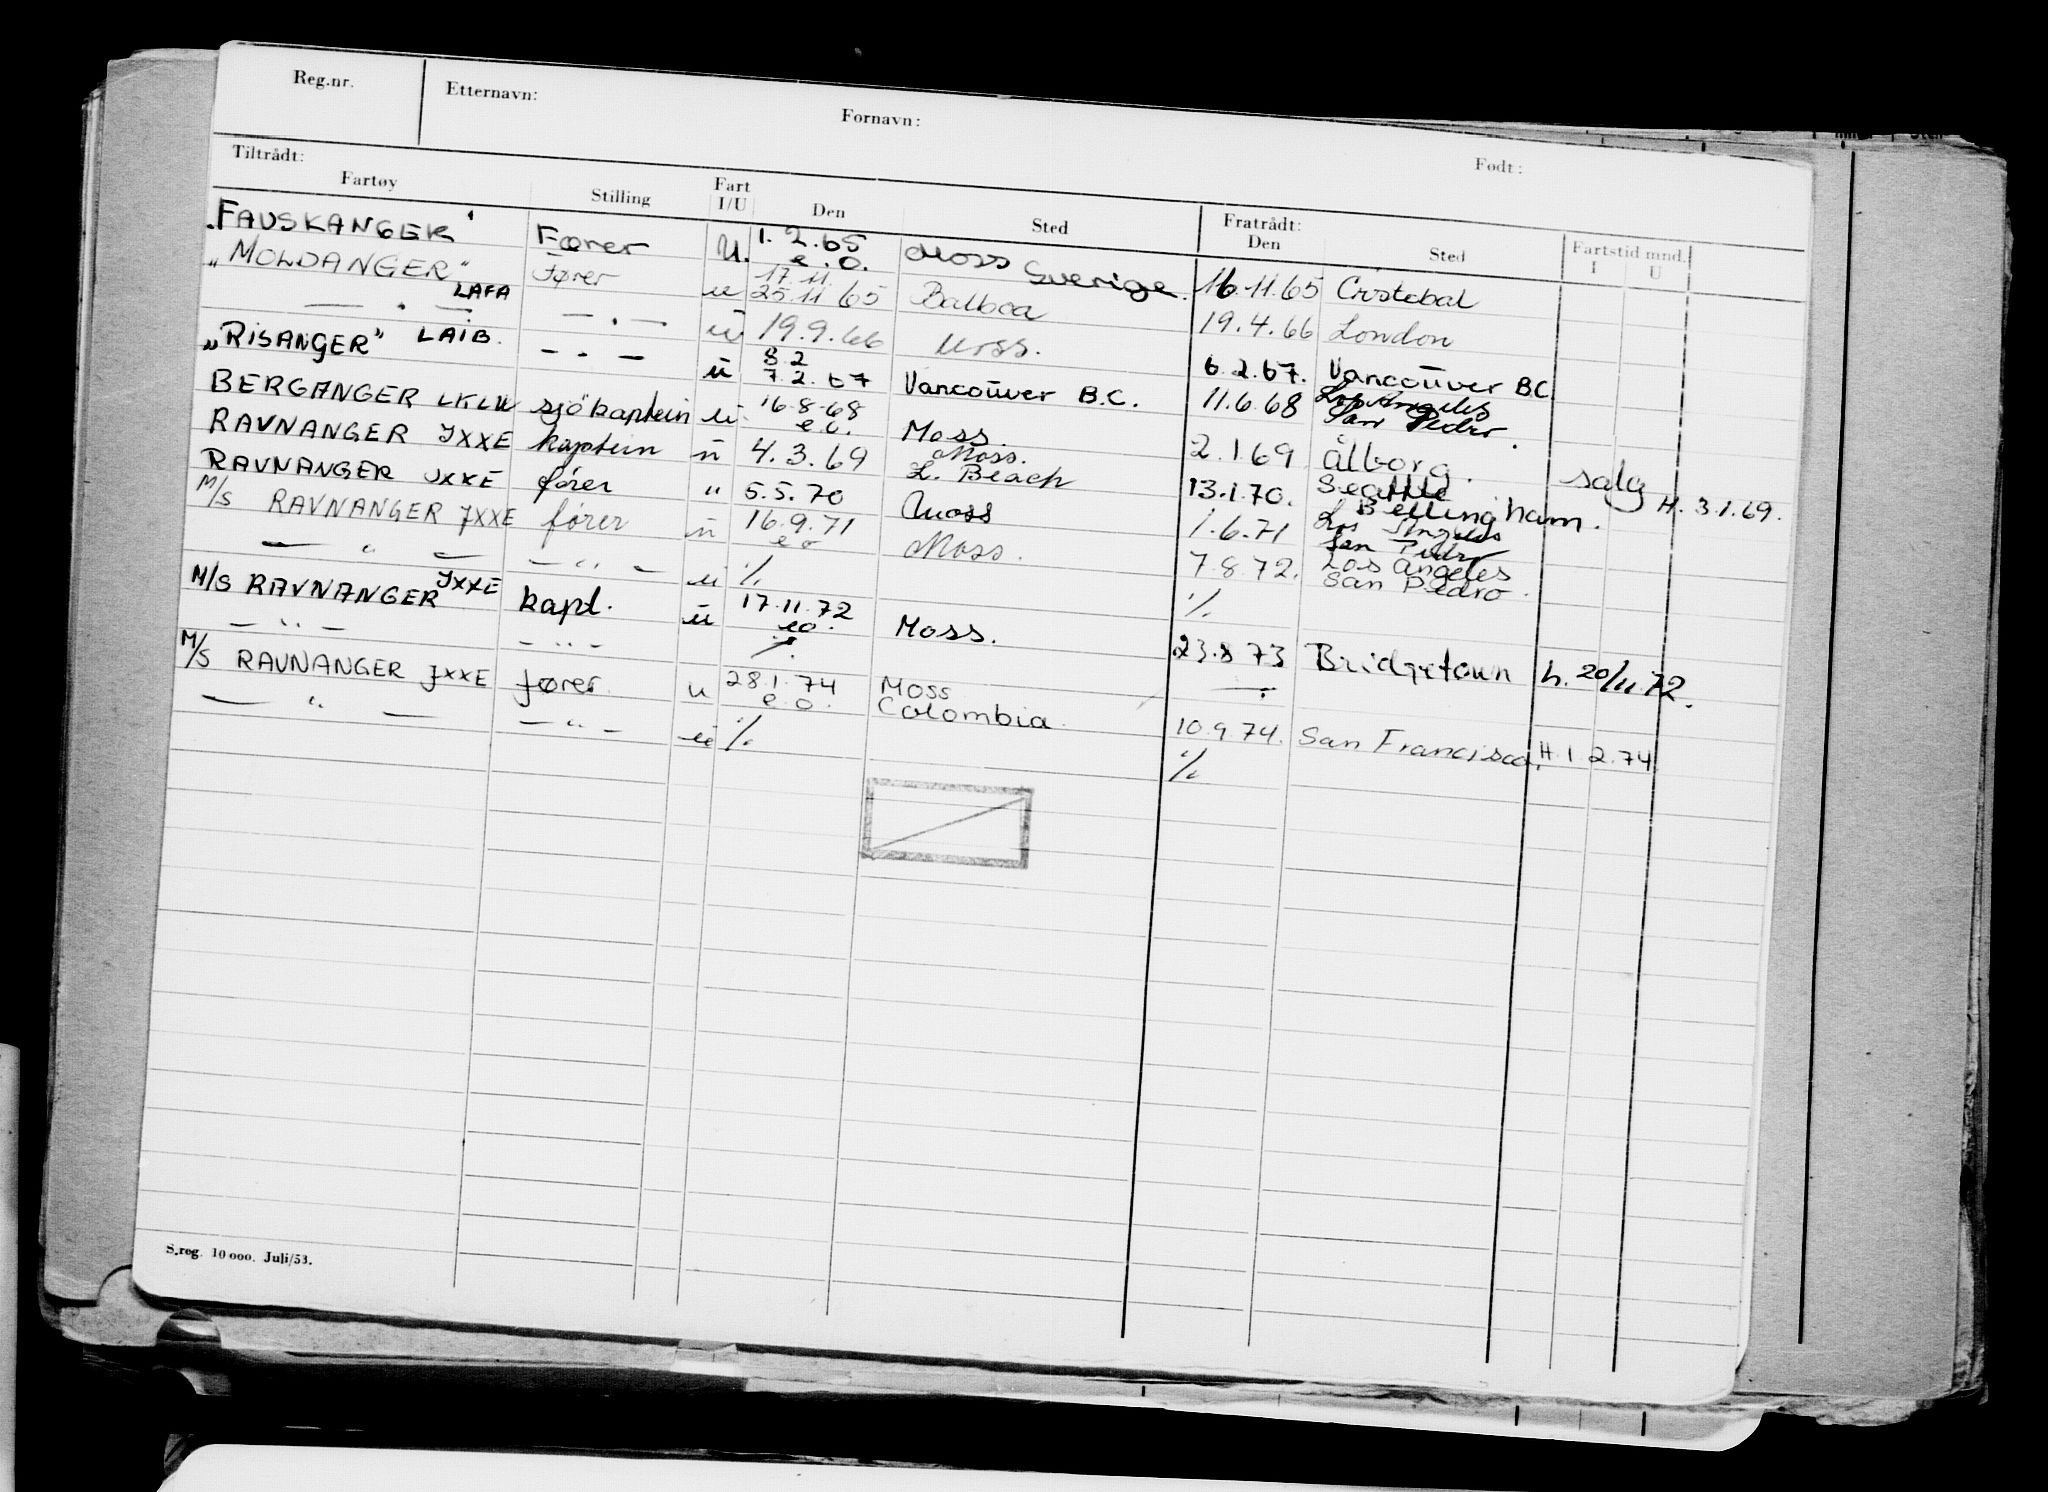 Reg.nr. Etternavn: Fornavn: Født:
Tiltrådt: Fratrådt:
Fartøy Stilling Fart I/U Den Sted Den Sted Fartstid mnd. I U
"FAUSKANGER" Fører U. 1.2.65 e.o. Moss Sverige. 16.11.65 Cristobal
"MOLDANGER" Fører u 17.11 25.11.65 Balboa 19.4.66 London
— " — LAFA — " — u 19.9.66 Moss. 6.2.67. Vancouver B.C.
"RISANGER" LAIB. — " — u 8.2 7.2.67 Vancouver B.C. 11.6.68 Los Angeles San Pedro.
BERGANGER LKLW sjökaptein u 16.8.68 e.o. Moss. 2.1.69 Ålborg. salg H. 3.1.69.
RAVNANGER JXXE kaptein u 4.3.69 Moss. L. Beach 13.1.70. Seattle Bellingham.
RAVNANGER JXXE fører " 5.5.70 Moss 1.6.71 Los Angeles San Pedro
M/S RAVNANGER JXXE fører u 16.9.71 eo Moss. 7.8.72. Los Angeles San Pedro.
— " — — " — u %. %.
M/S RAVNANGER JXXE kapt. u 17.11.72 eo. Moss. 23.8.73 Bridgetown h. 20/11.72.
— " — — " — %.
M/S RAVNANGER JXXE fører u 28.1.74 e.o. Moss Colombia. 10.9.74. San Francisco. H. 1.2.74
— " — — " — u %. %.
S.reg. 10 000. Juli/53.